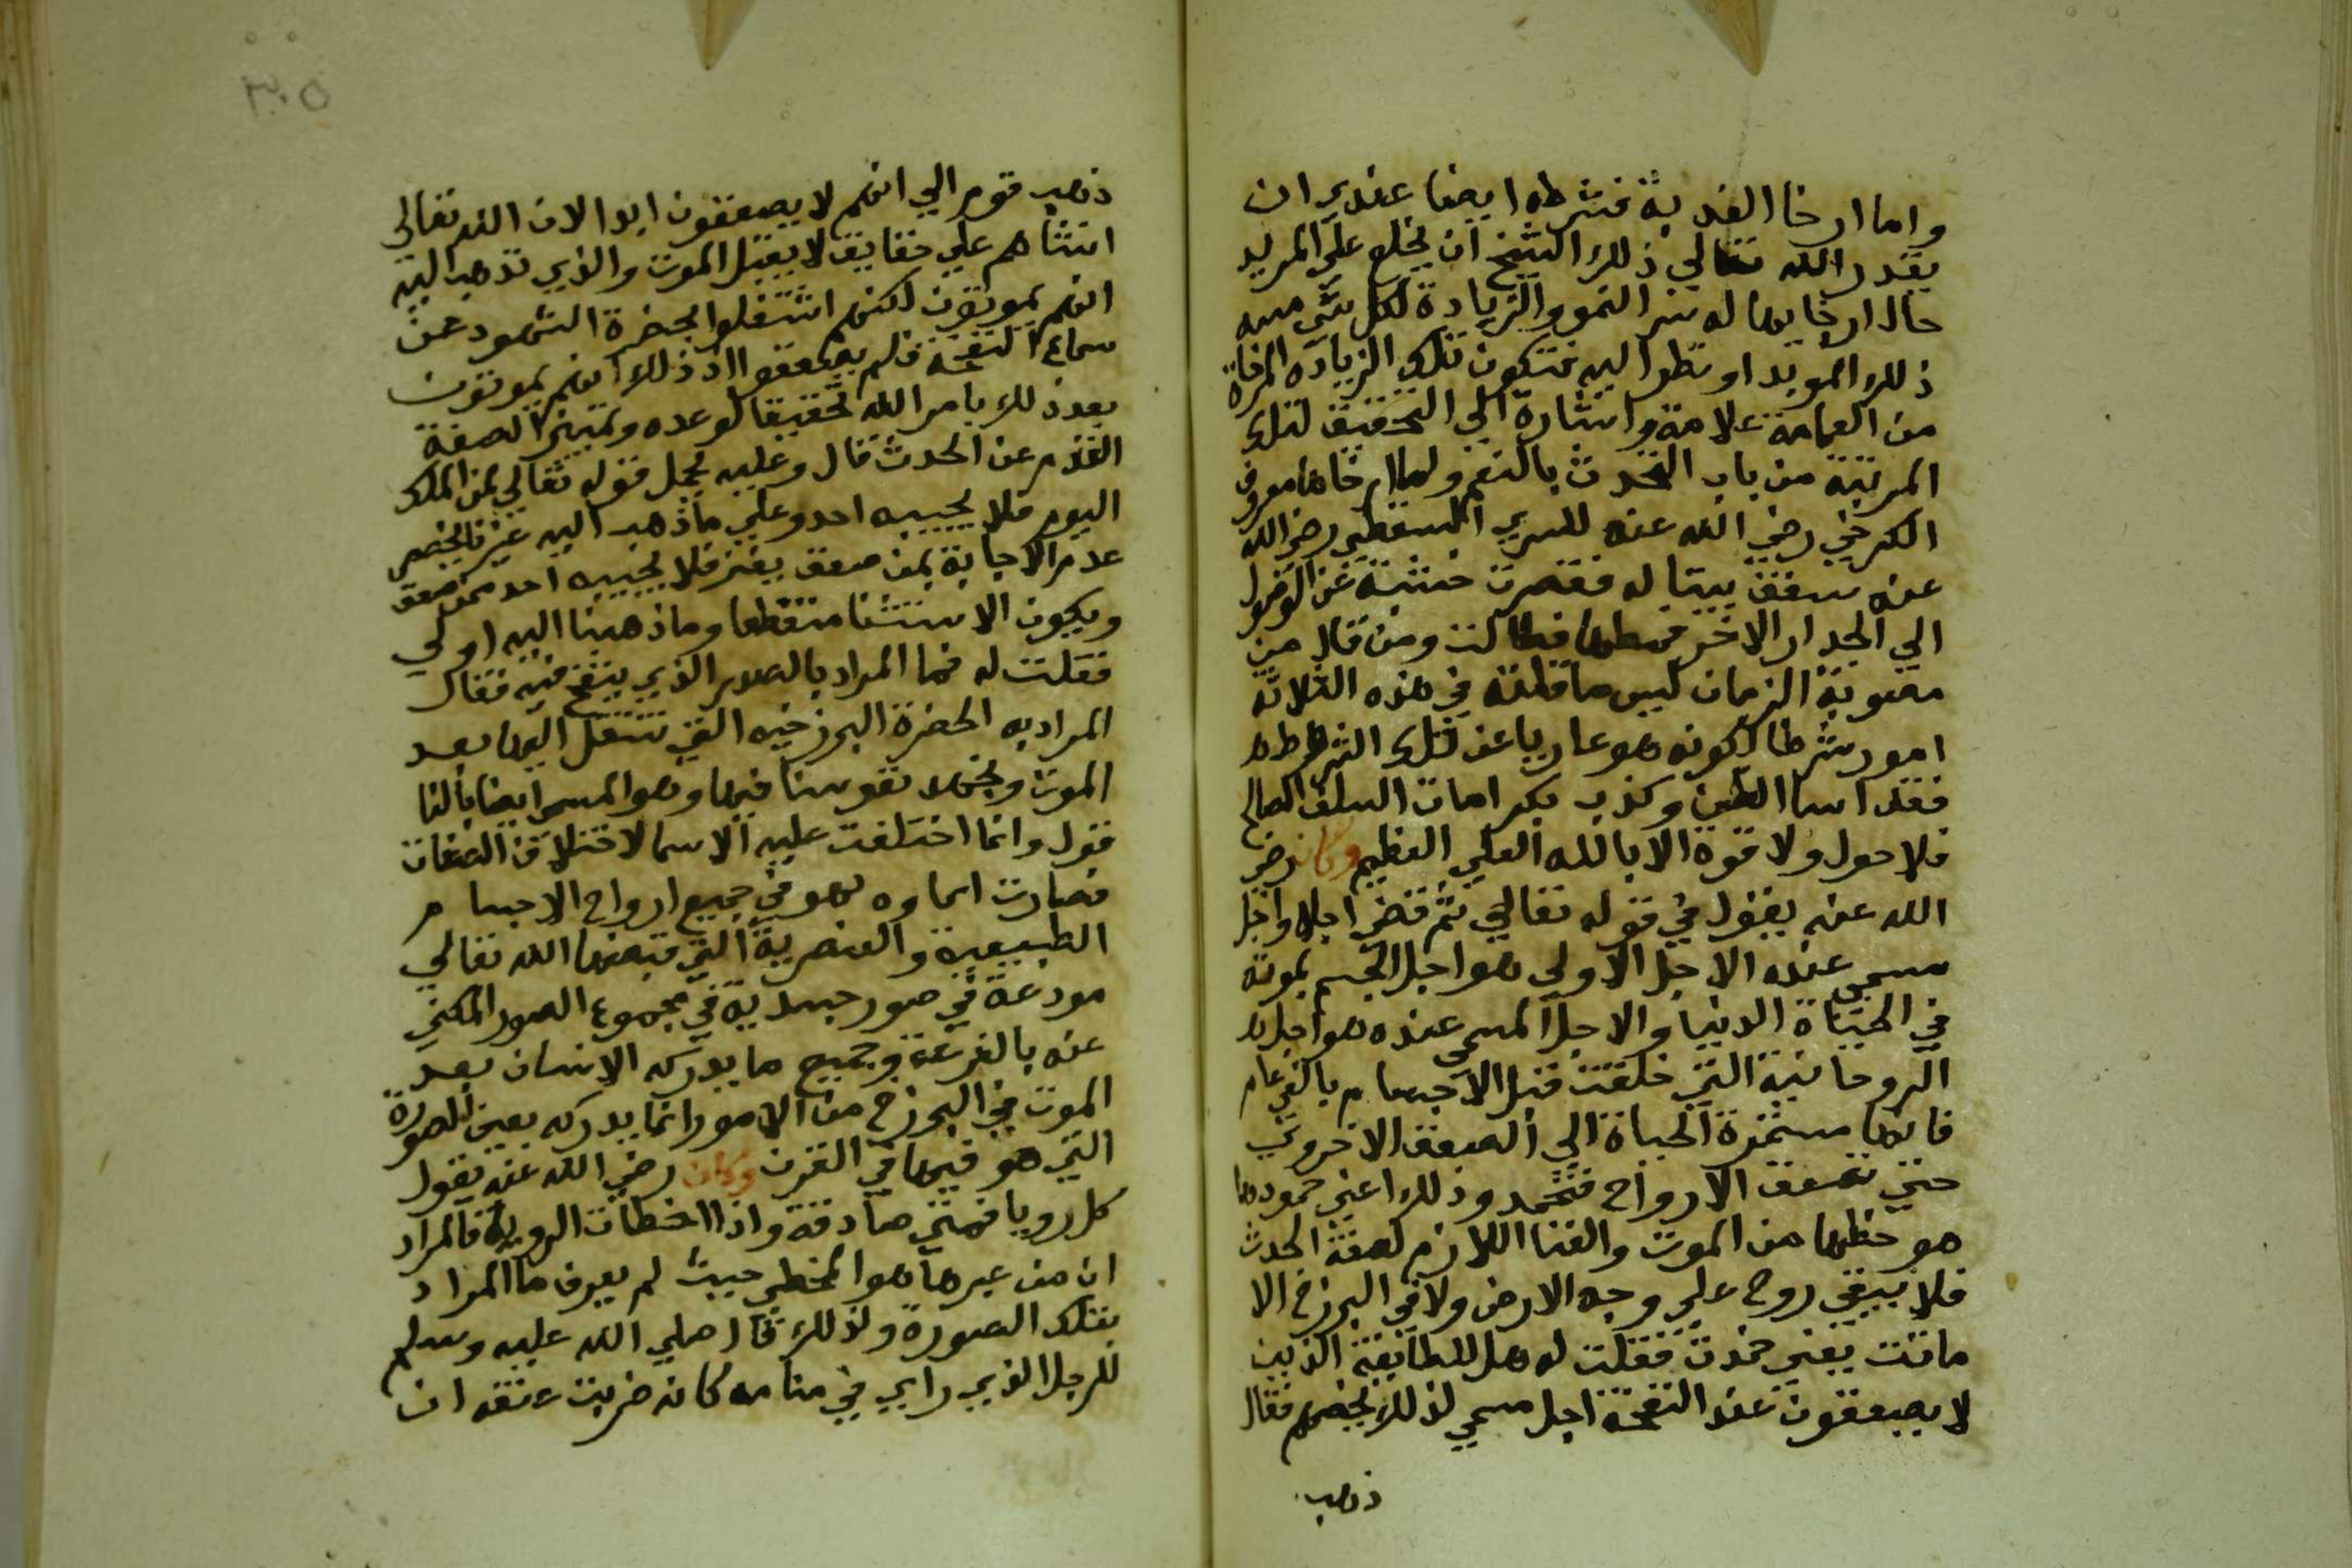 واما ارخا العذبة فشرطه ايضا عندي ان
يقدر الله تعالي ذلك الشيخ ان يخلع علي المريد
حال ارخايها له سر النمو والزيادة لكل شي مسه
ذلك المريد او نظر اليه فتكون تلك الزيادة المرخاة
من العمامة علامة واشارة الي التحقيق لتلك
المرتبة من باب التحدث بالنعم ولما ارخاها معروف
الكرخي رضي الله عنه للسري السقطي رضي الله
عنه سقف بيتا له فقصرت خشبة عن الوصول
الي الجدار الاخر فمطها فطالت ومن قال من
متصوفة الزمان ليس ما قلته في هذه الثلاثة
امور شرطا لكونه هو عاريا عن تلك الشروط
فقد اسا الظن وكذب بكرامات السلف الصالح
فلا حول ولا قوة الا بالله العلي العظيم وكان رضي
الله عنه يقول في قوله تعالي ثم قضي اجلا واجل
مسمي عنده الاجل الاولي هو اجل الجسم بموته
في الحياة الدنيا والاجل المسمي عنده هو اجل
الروحانية التي خلقت قبل الاجسام بالفي عام
فانها مستمرة الحياة الي الصعق الاخروي
حتي تصعق الارواح فتخمد وذلك اعني خمودها
هو حظها من الموت والفنا اللازم لصفة الحدث
فلا يبقي روح علي وجه الارض ولا في البرزخ الا
ماتت يعني خمدت فقلت له هل للطايفة الذين
لا يصعقون عند النفخة اجل مسمي لذلك يخصهم فقال
ذهب
٣٠٥
ذهب قوم الي انهم لا يصعقون ابدا لان الله تعالي
انشاهم علي حقايق لا يقبل الموت والذي نذهب اليه
انهم يموتون لكنهم اشتغلوا بحضرة الشهود عن
سماع النفخة فلم يصعقوا اذ ذلك انهم يموتون
بعد ذلك بامر الله تحقيقا لوعده وتمييز الصفة
القدم عن الحدث قال وعليه يحمل قوله تعالي لمن الملك
اليوم فلا يجيبه احد وعلي ما ذهب اليه غيرنا يختص
عدم الاجابة بمن صعق يعني فلا يجيبه احد ممن صعق
ويكون الاستثنا منقطعا وما ذهبنا اليه اولي
فقلت له فما المراد بالصور الذي ينفخ فيه فقال
المراد به الحضرة البرزخيه التي ننتقل اليها بعد
الموت ونجعل نفوسنا فيها وهو المسمي ايضا بالنا
قول وانما اختلفت عليه الاسما لاختلاف الصفات
فصارت اسماوه لهو في جميع ارواح الاجسام
الطبيعية والعنصرية التي قبضها الله تعالي
مودعة في صور جسدية في مجموع الصور المكني
عنه بالقرعة وجميع ما يدركه الانسان بعد
الموت في البرزخ من الامور انما يدركه بعين الصورة
التي هو فيها في القرن وكان رضي الله عنه يقول
كل رويا فهي صادقة واذا اخطات الروية فالمراد
ان من عبرها هو المخطي حيث لم يعرف ما المراد
بتلك الصورة ولذلك قال صلي الله عليه وسلم
للرجل الذي راي في منامه كانه ضربت عنقه ان